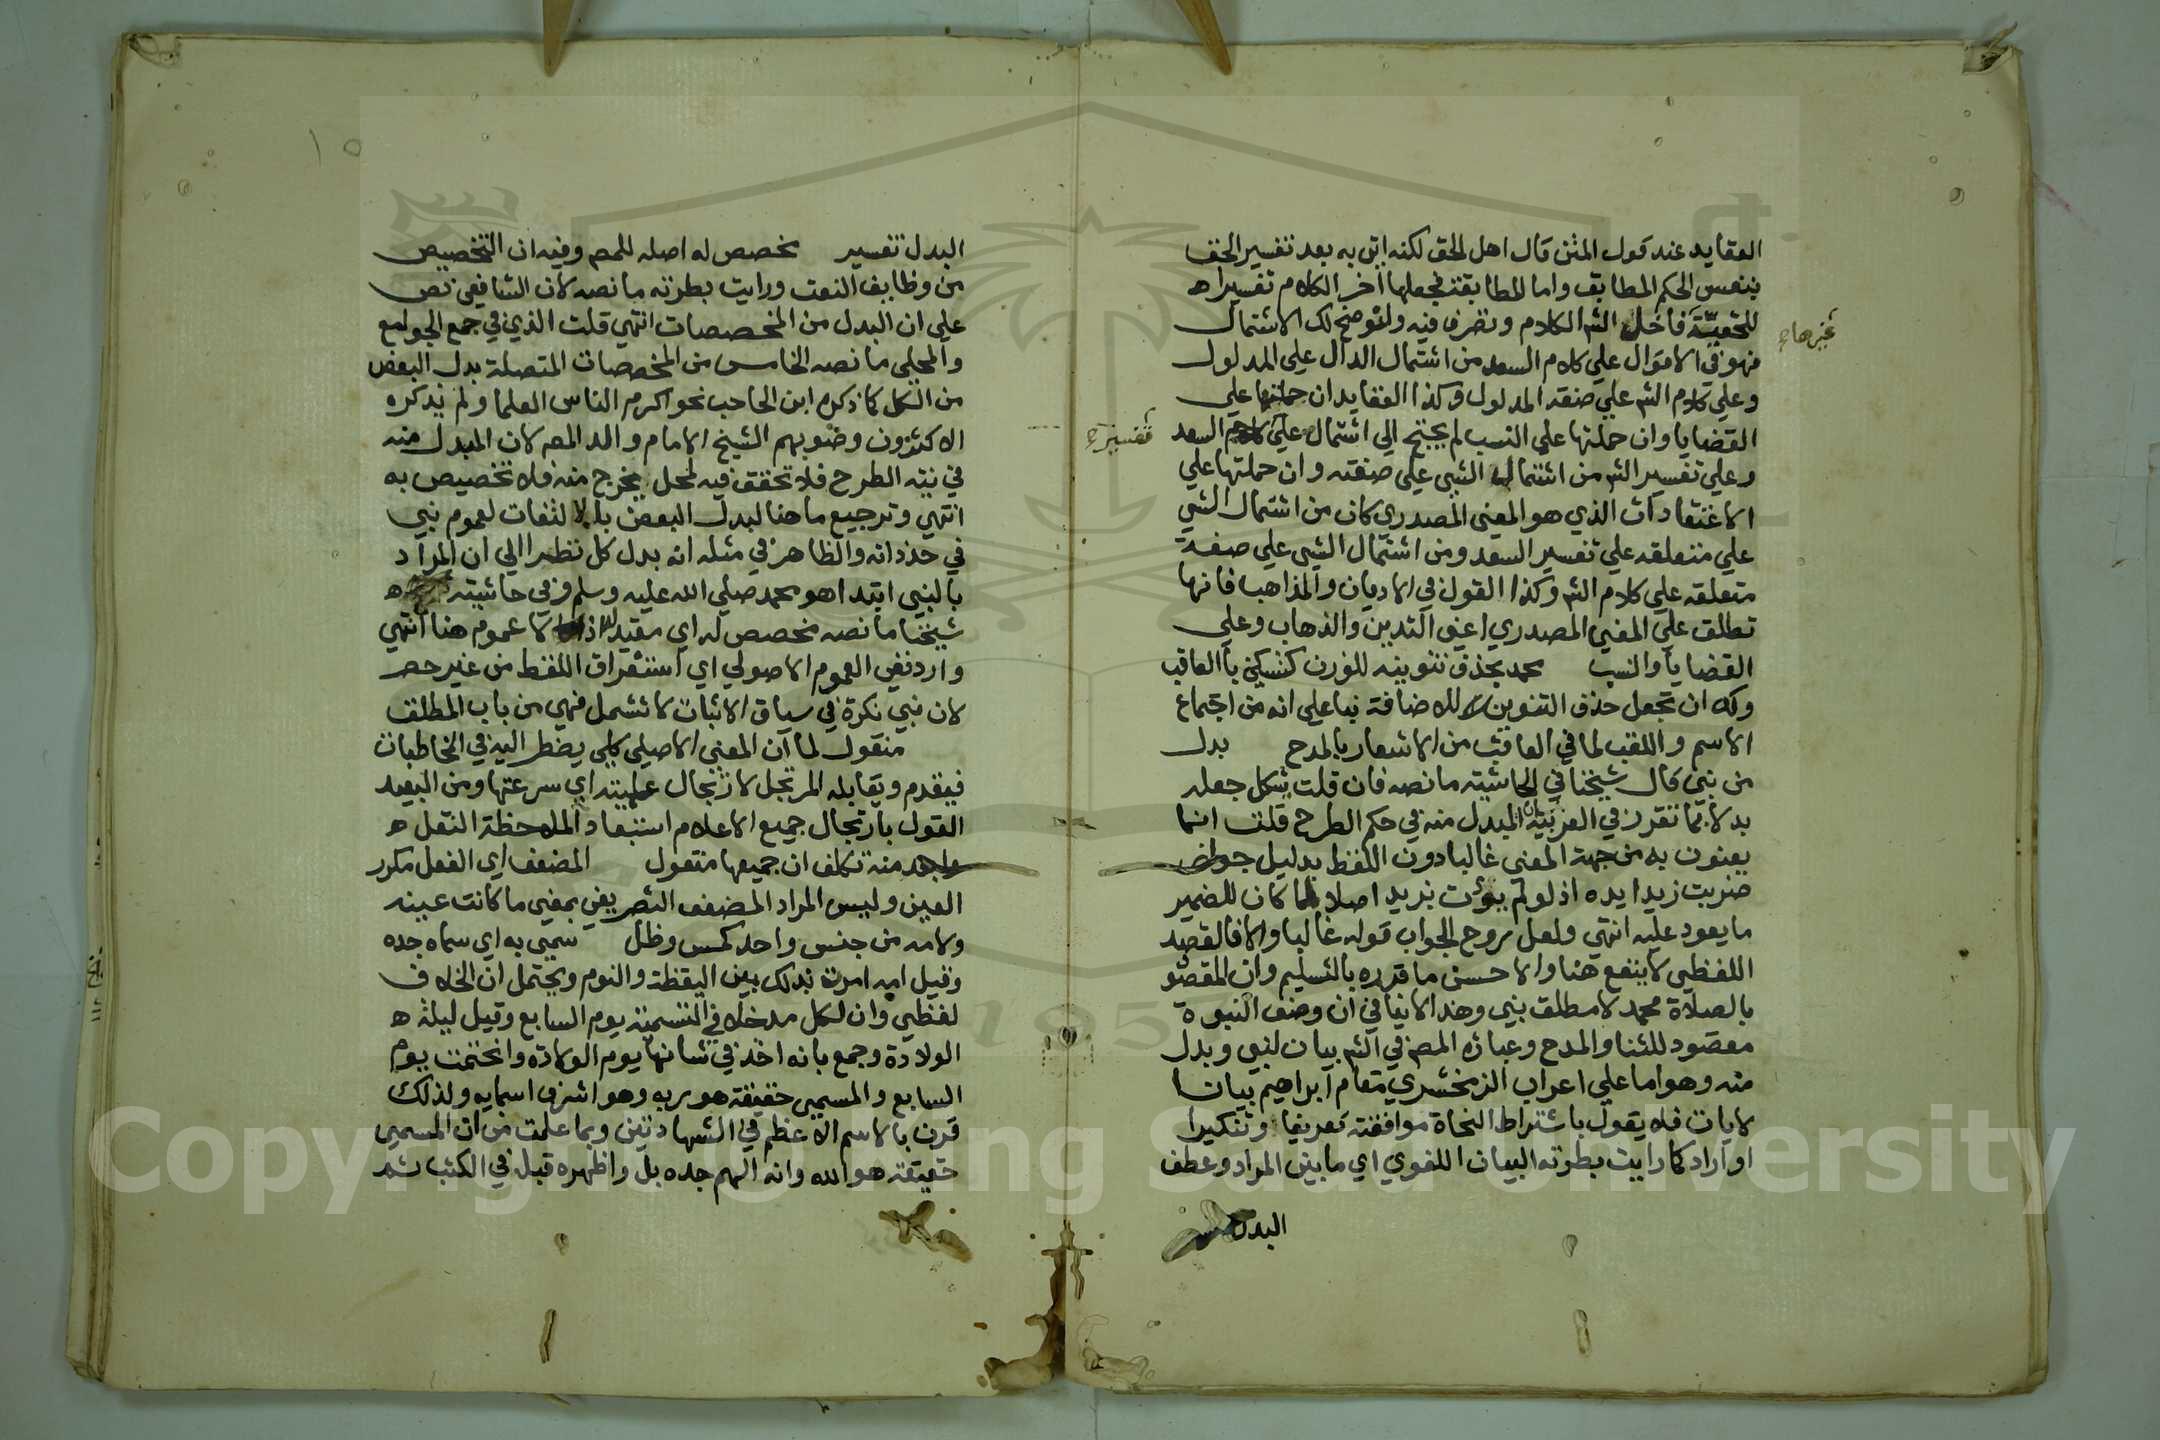 العقايد عند قول المتن قال اهل الحق لكنه اتي به بعد تفسير الحق
بنفس الحكم المطابق واما المطابقة فجعلها اخر الكلام تفسيرا ه
للحقية فاخل الش الكلام وتصرف فيه ولنوضح لك الاشتمال
غيرها
فهو في الاقوال علي كلام السعد من اشتمال الدال علي المدلول
وعلي كلام الش علي صفة المدلول وكذا العقايد ان حملتها علي
القضايا وان حملتها علي النسب لم يحتج الي اشتمال علي كلام السعد
تفسيره
وعلي تفسير الش من اشتمال الشي علي صفته وان حملتها علي
الاعتقادات الذي هو المعني المصدري كان من اشتمال الشي
علي متعلقه علي تفسير السعد ومن اشتمال الشي علي صفة
متعلقه علي كلام الش وكذا القول في الاديان والمذاهب فانها
تطلق علي المعني المصدري اعني التدين والذهاب وعلي
القضايا والنسب محمد بحذف تنوينه للوزن كتسكين يا العاقب
ولك ان تجعل حذف التنوين للاضافة بنا علي انه من اجتماع
الاسم واللقب لما في العاقب من الاشعار بالمدح بدل
من نبي قال شيخنا في الحاشية ما نصه فان قلت يشكل جعله
بدلا بما تقرر في العربية ان المبدل منه في حكم الطرح قلت انما
يعنون به من جهة المعني غالبا دون اللفظ بدليل جواز
ضربت زيدا يده اذ لو لم يؤت بزيد اصلا لما كان للضمير
ما يعود عليه انتهي ولعل روح الجواب قوله غالبا والا فالقصد
اللفظي لا ينفع هنا والاحسن ما قدره بالتسليم وان المقصو
بالصلاة محمد لا مطلق نبي وهذا لا ينافي ان وصف النبوة
مقصود للثنا والمدح وعبارة المص في الش بيان لنبي وبدل
منه وهو اما علي اعراب الزمخشري مقام ابراهيم بيانا
لايات فلا يقول باشتراط النحاة موافقته تعريفا وتنكيرا
او اراد كما رايت بطرته البيان اللغوي اي ما بين المراد وعطف
البدل
١٥
البدل تفسير مخصص له اصله للمص وفيه ان التخصيص
من وظايف النعت ورايت بطرته ما نصه لان الشافعي نص
علي ان البدل من المخصصات انتهي قلت الذي في جمع الجوامع
والمحلي ما نصه الخامس من المخصصات المتصلة بدل البعض
من الكل كما ذكره ابن الحاجب نحو اكرم الناس العلما ولم يذكره
الاكثرون وصوبهم الشيخ الامام والد المص لان المبدل منه
في نية الطرح فلا تحقق فيه لمحل يخرج منه فلا تخصيص به
انتهي وترجيع ما هنا لبدل البعض بالالتفات لعموم نبي
في حد ذاته والظاهر في مثله انه بدل كل نظرا الي ان المراد
بالنبي ابتدا هو محمد صلي الله عليه وسلم وفي حاشية ه
شيخنا ما نصه مخصص له اي مقيد له اذ لا عموم هنا انتهي
واراد نفي العموم الاصولي اي استغراق اللفظ من غير حصر
لان نبي نكرة في سياق الاثبات لا تشمل فهي من باب المطلق
منقول لما ان المعني الاصلي كلي يضطر اليه في المخاطبات
فيقدم ويقابله المرتجل لارتجال علميته اي سرعتها ومن البعيد
القول بارتجال جميع الاعلام استبعاد الملاحظة النقل ه
وابعد منه تكلف ان جميعها منقول المضعف اي الفعل مكرر
العين وليس المراد المضعف التصريفي بمعني ما كانت عينه
ولامه من جنس واحد كمس وظل سمي به اي سماه جده
وقيل امه امرت بذلك بين اليقظة والنوم ويحتمل ان الخلاف
لفظي وان لكل مدخلا في التسمية يوم السابع وقيل ليلة ه
الولادة وجمع بانه اخذ في شانها يوم الولادة وانختمت يوم
السابع والمسمي حقيقة هو ربه وهو اشرف اسمايه ولذلك
قرن بالاسم الاعظم في الشهادتين وبما علمت من ان المسمي
حقيقة هو الله وانه الهم جده بل واظهره قبل في الكتب